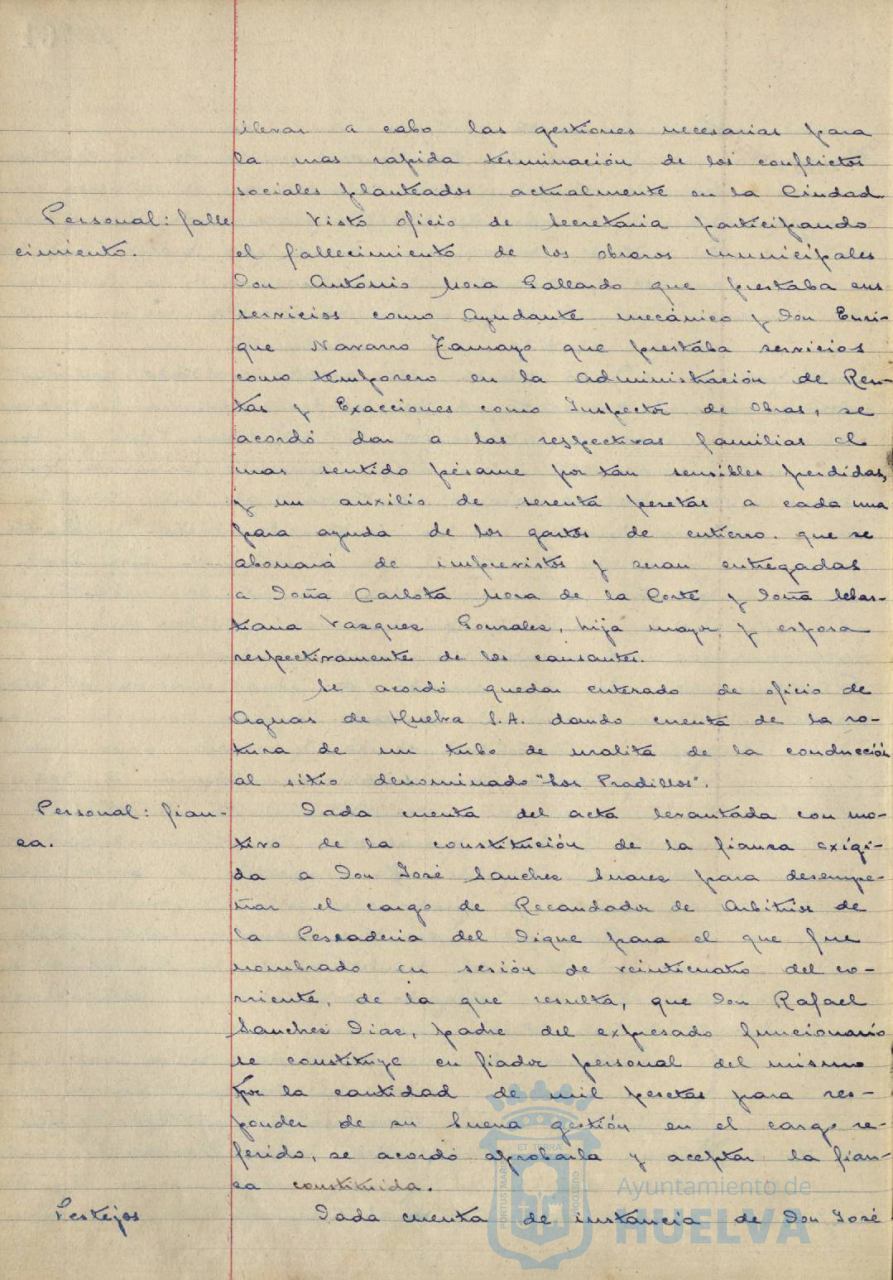 llevar a cabo las gestiones necesarias para
la mas rapida terminación de los conflictos
sociales planteados actualmente en la Ciudad.
Personal: falle
cimiento.
Visto oficio de Secretaria participando
el fallecimiento de los obreros municipales
Don Antonio Mora Gallardo que prestaba sus
servicios como Ayudante mecánico y Don Enri-
que Navarro Tamayo que prestaba servicios
como temporero en la Administración de Ren-
tas y Exacciones como Inspector de Obras, se
acordó dar a las respectivas familias el
mas sentido pésame por tan sensibles perdidas,
y un auxilio de sesenta pesetas a cada una
para ayuda de los gastos de entierro. que se
abonará de imprevistos y seran entregadas
a Doña Carlota Mora de la Corte y Doña Sebas-
tiana Vazquez Gonzalez, hija mayor y esposa
respectivamente de los causantes.
Se acordó quedar enterado de oficio de
Aguas de Huelva S.A. dando cuenta de la ro-
tura de un tubo de uralita de la conducción
al sitio denominado "Los Pradillos".
Personal: fian-
za.
Dada cuenta del acta levantada con mo-
tivo de la constitución de la fianza exigi-
da a Don José Sanchez Suarez para desempe-
ñar el cargo de Recaudador de Arbitrios de
la Pescaderia del Dique para el que fue
nombrado en sesión de veinticuatro del co-
rriente, de la que resulta, que Don Rafael
Sanchez Diaz, padre del expresado funcionario
se constituye en fiador personal del mismo
por la cantidad de mil pesetas para res-
ponder de su buena gestión en el cargo re-
ferido, se acordó aprobarla y aceptar la fian-
za constituida.
Festejos
Dada cuenta de instancia de Don José
Ayuntamiento de
HUELVA